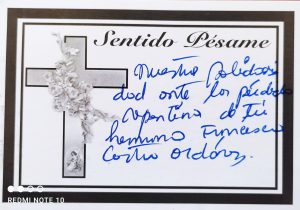 Sentido Pésame
Nuestra solidari
dad ante la pérdida
repentina de tu
hermano Francisco
Castro
REDMI NOTE 10